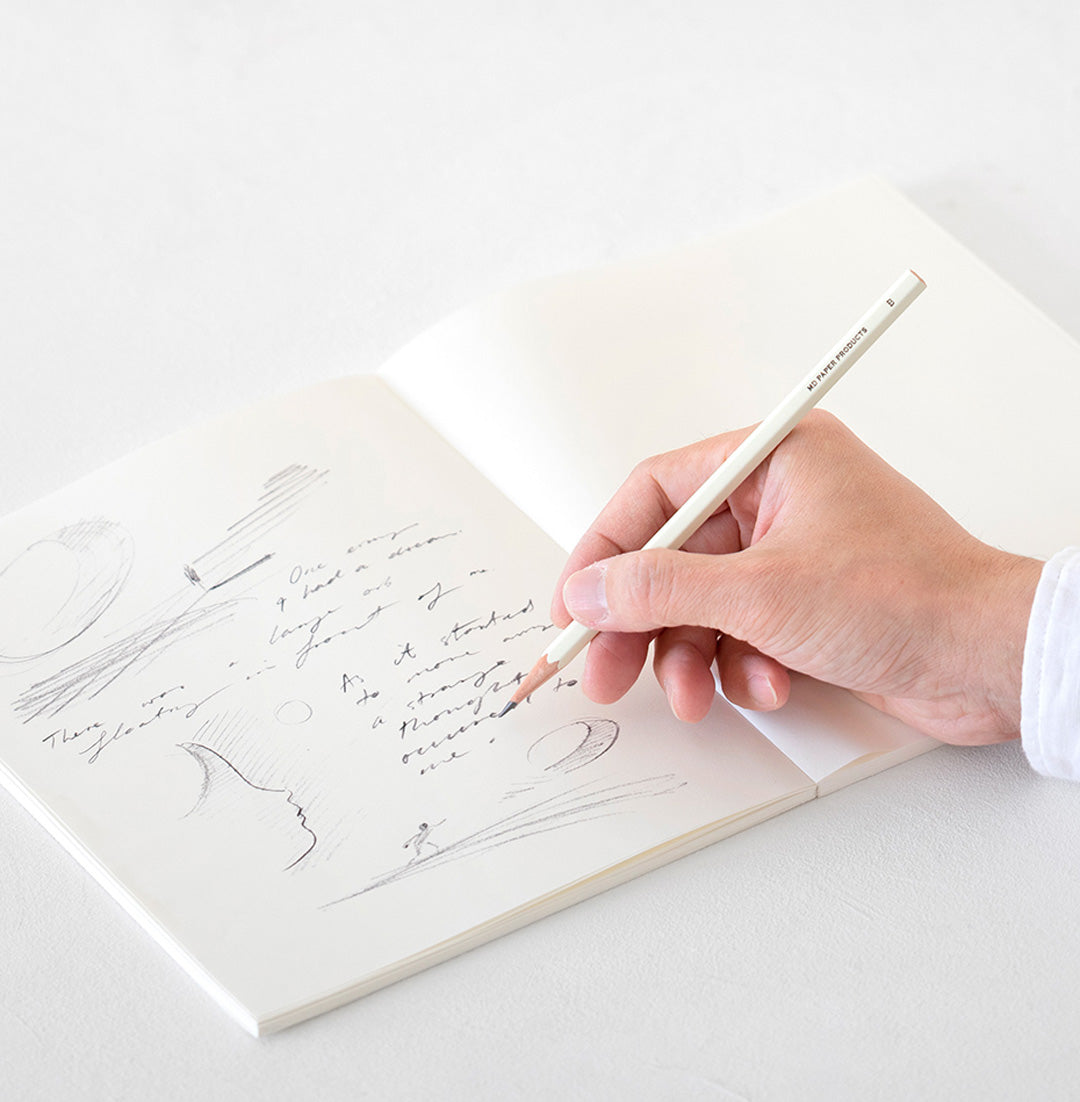 One
I had a dream.
There was a large orb
floating in front of me
As it started
to move
a strange
thought to
occurred
me.
MD PAPER PRODUCTS
B